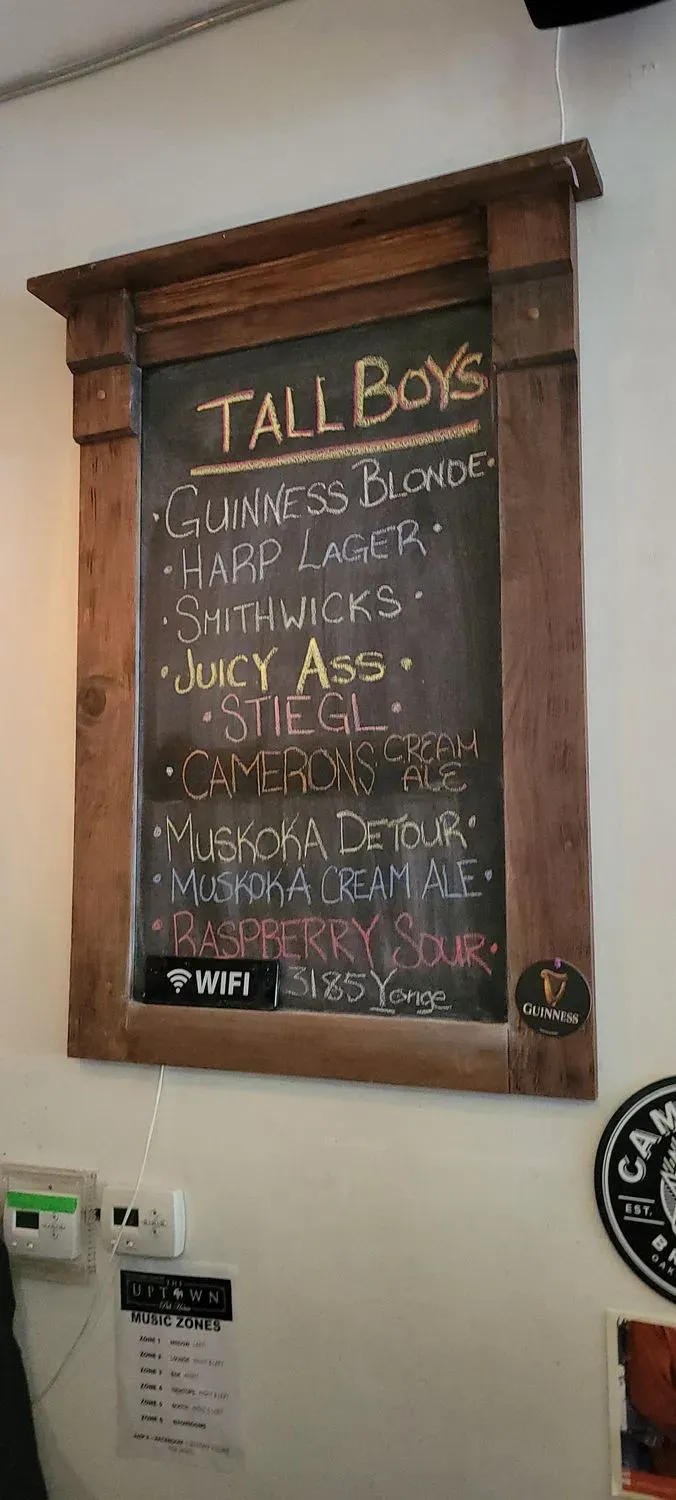 TALL BOYS
GUINNESS BLONDE
HARP LAGER
SMITHWICKS
JUICY ASS
STIEGL
CAMERONS CREAM
ALE
MUSKOKA DETOUR
MUSKOKA CREAM ALE
RASPBERRY SOUR
WIFI 3185Yonge
GUINNESS
EST.
THE
UPTOWN
MUSIC ZONES
ZONE 1
ZONE 2
ZONE 3 BAR
ZONE 4
ZONE 5
ZONE 6